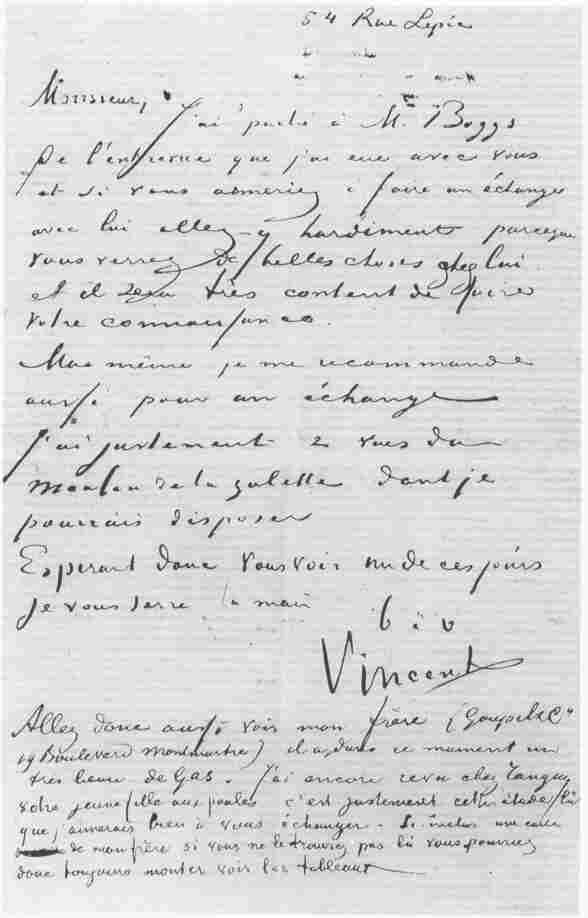 54 Rue Lepic
Monsieur,
J'ai parlé à Mr Boggs
de l'entrevue que j'ai eue avec vous
et si vous aimeriez à faire un échange
avec lui allez-y hardiments parceque
vous verrez de belles choses chez lui
et il sera très content de faire
votre connaissance.
Moi même je me recommande
aussi pour un échange
J'ai justement 2 vues du
Moulin de la galette dont je
pourrais disposer
Esperant donc vous voir un de ces jours
je vous serre la main
b à v
Vincent
Allez donc aussi voir mon frère (Goupil & Cie
19 Boulevard Montmartre) il a dans ce moment un
tres beau de Gas. J'ai encore revu chez Tanguy
votre jeune fille aux poules c'est justement cette étude là
que j'aimerais bien à vous échanger. Si inclus une carte
de mon frère si vous ne le trouviez pas là vous pourriez
donc toujours monter voir les tableaux